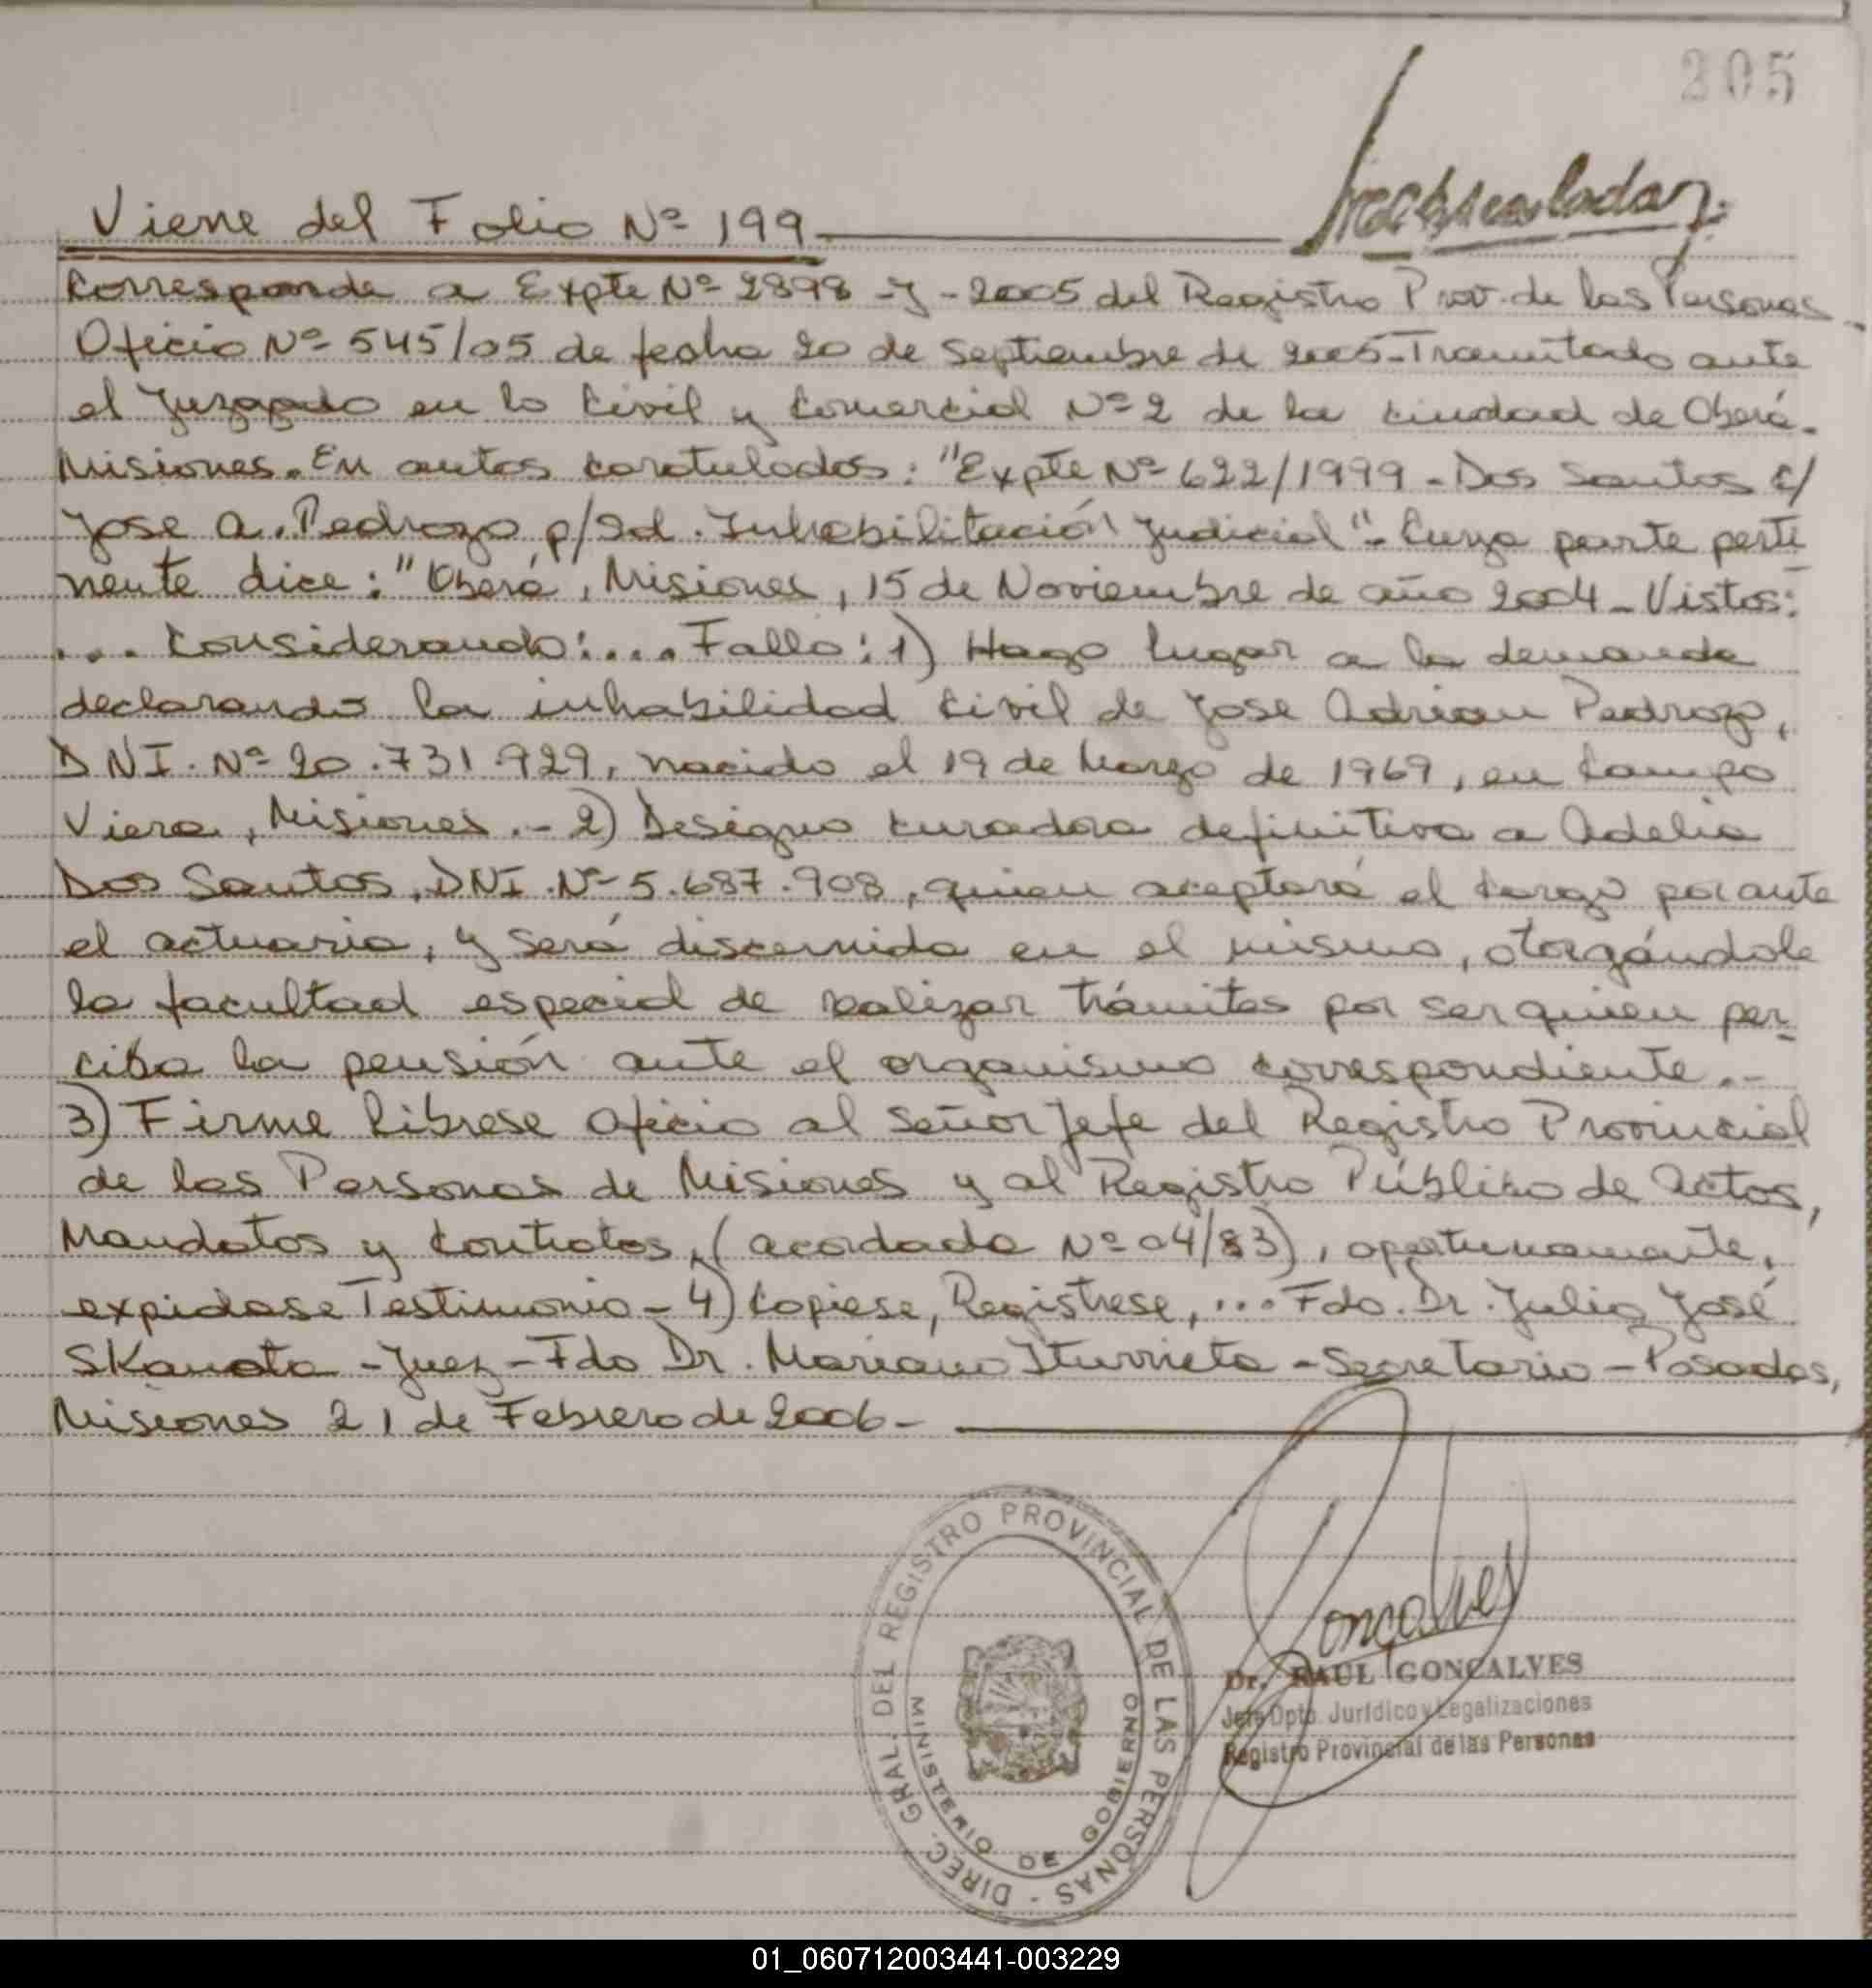 205
Viene del Folio Nº 199
Corresponde a Expte Nº 2898 - Y - 2005 del Registro Prov. de las Personas
Oficio Nº 545/05 de fecha 20 de Septiembre de 2005 - Tramitado ante
el Juzgado en lo Civil y Comercial Nº 2 de la ciudad de Oberá -
Misiones. En autos caratulados: "Expte Nº 622/1999 - Dos Santos c/
Jose A. Pedrozo p/Sd. Inhabilitación Judicial" - Cuya parte perti
nente dice: "Oberá, Misiones, 15 de Noviembre de año 2004 - Vistos:
... Considerando: ... Fallo: 1) Hago lugar a la demanda
declarando la inhabilidad civil de Jose Adrian Pedrozo,
DNI. Nº 20.731.929, nacido el 19 de Marzo de 1969, en Campo
Viera, Misiones. - 2) Designo curadora definitiva a Adelia
Dos Santos, DNI. Nº 5.687.908, quien aceptará el cargo por ante
el actuario, y será discernida en el mismo, otorgándole
la facultad especial de realizar trámites por ser quien per-
ciba la pensión ante el organismo correspondiente. -
3) Firme líbrese oficio al señor Jefe del Registro Provincial
de las Personas de Misiones y al Registro Público de Actos,
Mandatos y Contratos, (acordada Nº 04/83), oportunamente,
expidase Testimonio - 4) Copiese, Registrese, ... Fdo. Dr. Julio José
Skanata - Juez - Fdo Dr. Mariano Iturrieta - Secretario - Posadas,
Misiones 21 de Febrero de 2006 -
DIREC. GRAL. DEL REGISTRO PROVINCIAL DE LAS PERSONAS -
MINISTERIO DE GOBIERNO
Goncalves
Dr. RAUL GONCALVES
Jefe Dpto. Jurídico y Legalizaciones
Registro Provincial de las Personas
01_060712003441-003229